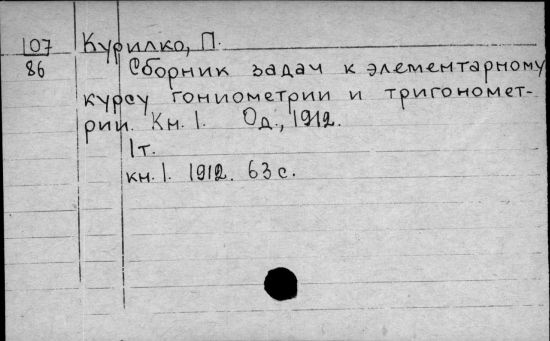 107 Курилко, П.
86 Сборник задач к элементарному
курсу гониометрии и тригономет-
рии. Кн. 1. Од., 1912.
1 т.
кн. 1. 1912. 63 с.